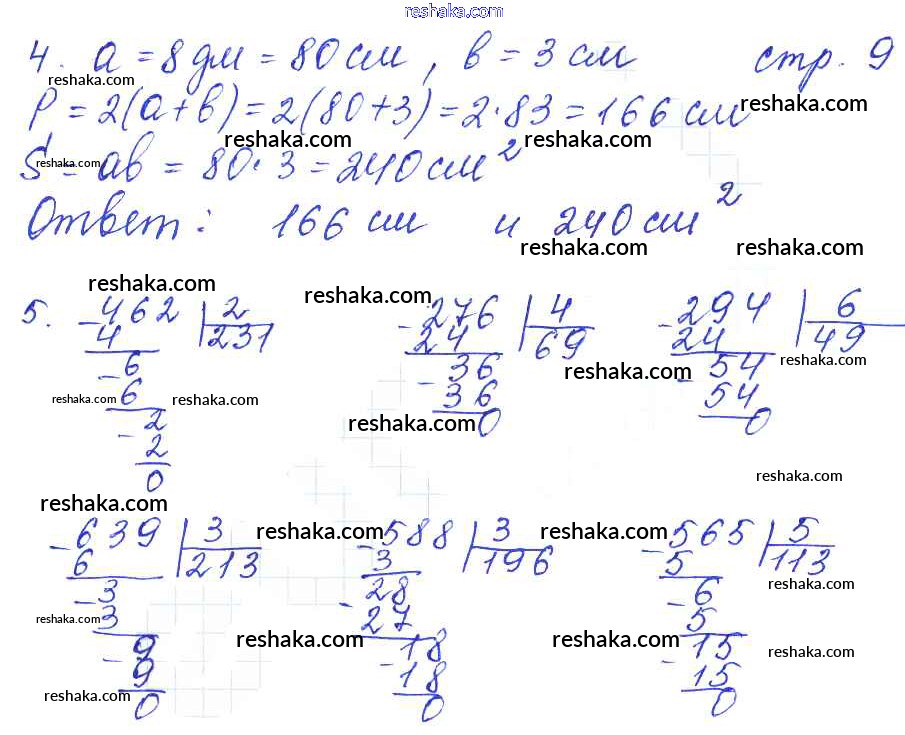 reshaka.com
4. a = 8 дм = 80 см, b = 3 см стр. 9
reshaka.com
P = 2(a+b) = 2(80+3) = 2·83 = 166 см
reshaka.com
reshaka.com reshaka.com
S = ab = 80·3 = 240 см²
reshaka.com
Ответ: 166 см и 240 см²
reshaka.com reshaka.com
reshaka.com reshaka.com
5. -462 | 2 -276 | 4 -294 | 6
4 231 24 69 24 49
reshaka.com
-6 -36 -54
reshaka.com
6 36 54
reshaka.com reshaka.com
-2 0 0
reshaka.com
2
0
reshaka.com
reshaka.com
-639 | 3 -588 | 3 -565 | 5
reshaka.com reshaka.com
6 213 3 196 5 113
reshaka.com
-3 -28 -6
3 27 5
reshaka.com
-9 -18 -15
reshaka.com reshaka.com reshaka.com
9 18 15
reshaka.com
0 0 0